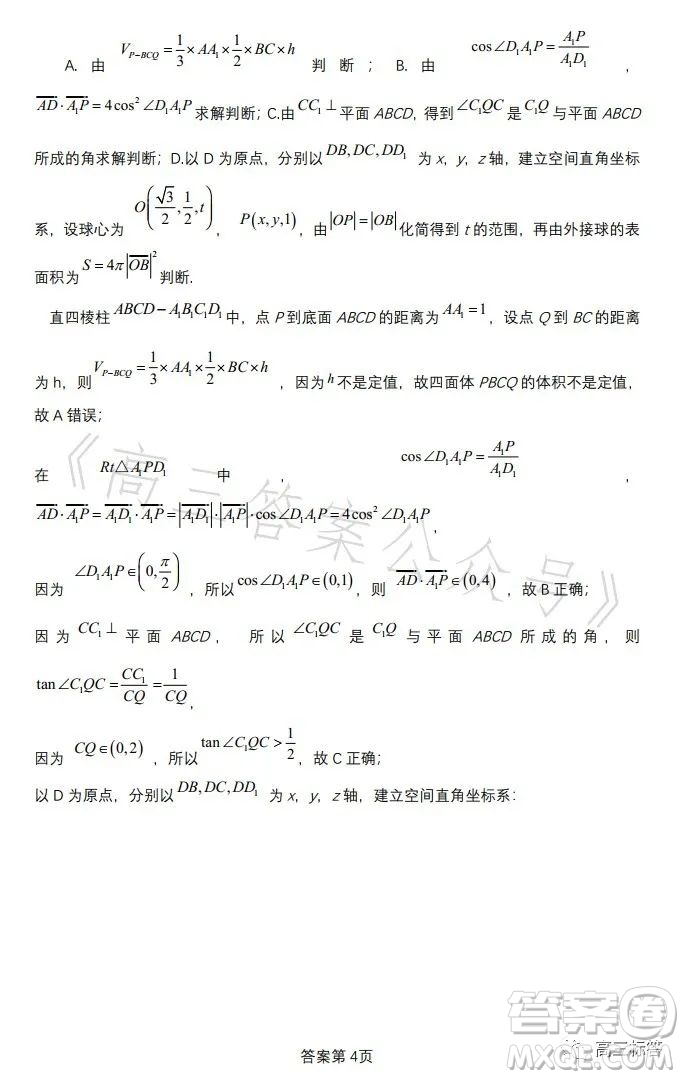 A. 由 V_{P-BCQ} = 1/3 × AA₁ × 1/2 × BC × h 判断；B. 由 cos∠D₁A₁P = A₁P/A₁D₁ ，
AD · A₁P = 4cos²∠D₁A₁P 求解判断；C.由 CC₁ ⊥ 平面 ABCD，得到 ∠C₁QC 是 C₁Q 与平面 ABCD
所成的角求解判断；D.以 D 为原点，分别以 DB, DC, DD₁ 为 x，y，z 轴，建立空间直角坐标
系，设球心为 O(√3/2, 1/2, t)， P(x, y,1)，由 |OP| = |OB| 化简得到 t 的范围，再由外接球的表
面积为 S = 4π|OB|² 判断.
直四棱柱 ABCD − A₁B₁C₁D₁ 中，点 P 到底面 ABCD 的距离为 AA₁ = 1，设点 Q 到 BC 的距离
为 h，则 V_{P-BCQ} = 1/3 × AA₁ × 1/2 × BC × h ，因为 h 不是定值，故四面体 PBCQ 的体积不是定值，
故 A 错误；
在 Rt△A₁PD₁ 中， cos∠D₁A₁P = A₁P/A₁D₁ ，
AD · A₁P = A₁D₁ · A₁P = |A₁D₁| · |A₁P| · cos∠D₁A₁P = 4cos²∠D₁A₁P ，
因为 ∠D₁A₁P ∈ (0, π/2) ，所以 cos∠D₁A₁P ∈ (0,1)，则 AD · A₁P ∈ (0,4) ，故 B 正确；
因为 CC₁ ⊥ 平面 ABCD， 所以 ∠C₁QC 是 C₁Q 与平面 ABCD 所成的角，则
tan∠C₁QC = CC₁/CQ = 1/CQ ，
因为 CQ ∈ (0,2) ，所以 tan∠C₁QC > 1/2 ，故 C 正确；
以 D 为原点，分别以 DB, DC, DD₁ 为 x，y，z 轴，建立空间直角坐标系：
《高三答案公众号》
答案第 4页
高三标答
答案圈
MXQE.COM